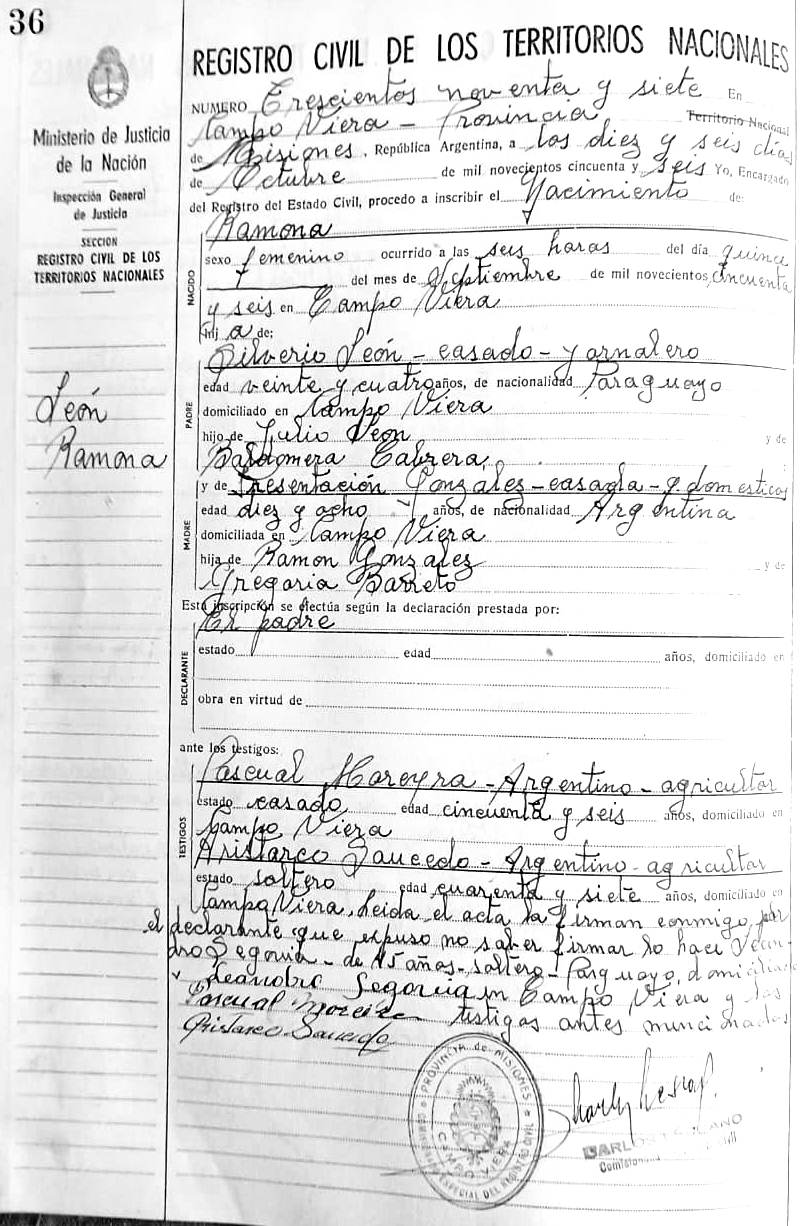 36
Ministerio de Justicia
de la Nación
Inspección General
de Justicia
SECCION
REGISTRO CIVIL DE LOS
TERRITORIOS NACIONALES
León
Ramona
REGISTRO CIVIL DE LOS TERRITORIOS NACIONALES
NUMERO Trescientos noventa y siete En
Campo Viera – Provincia Territorio Nacional
de Misiones, República Argentina, a los diez y seis días
de Octubre de mil novecientos cincuenta y seis Yo, Encargado
del Registro del Estado Civil, procedo a inscribir el Nacimiento de:
NACIDO
Ramona
sexo femenino ocurrido a las seis horas del día quince
del mes de Septiembre de mil novecientos cincuenta
y seis en Campo Viera
hija de:
PADRE
Silverio León – casado – yornalero
edad veinte y cuatro años, de nacionalidad Paraguayo
domiciliado en Campo Viera
hijo de Julio León y de
Baldomera Cabrera
MADRE
y de Presentación Gonzales – casada – q. domesticos
edad diez y ocho años, de nacionalidad Argentina
domiciliada en Campo Viera
hija de Ramon Gonzales y de
Gregoria Barreto
Esta inscripción se efectúa según la declaración prestada por:
El padre
DECLARANTE
estado edad años, domiciliado en
obra en virtud de
ante los testigos:
TESTIGOS
Pascual Moreyra – Argentino – agricultor
estado casado edad cincuenta y seis años, domiciliado en
Campo Viera
Aristarco Saucedo – Argentino – agricultor
estado soltero edad cuarenta y siete años, domiciliado en
Campo Viera, leida el acta la firman conmigo, por
el declarante que expuso no saber firmar lo hace Lean-
dro Segovia – de 45 años – soltero – Parguayo, domiciliado
Leandro Segovia en Campo Viera y los
Pascual Moreira testigos antes muncionados
Aristarco Saucedo
PROVINCIA de MISIONES
CAMPO VIERA